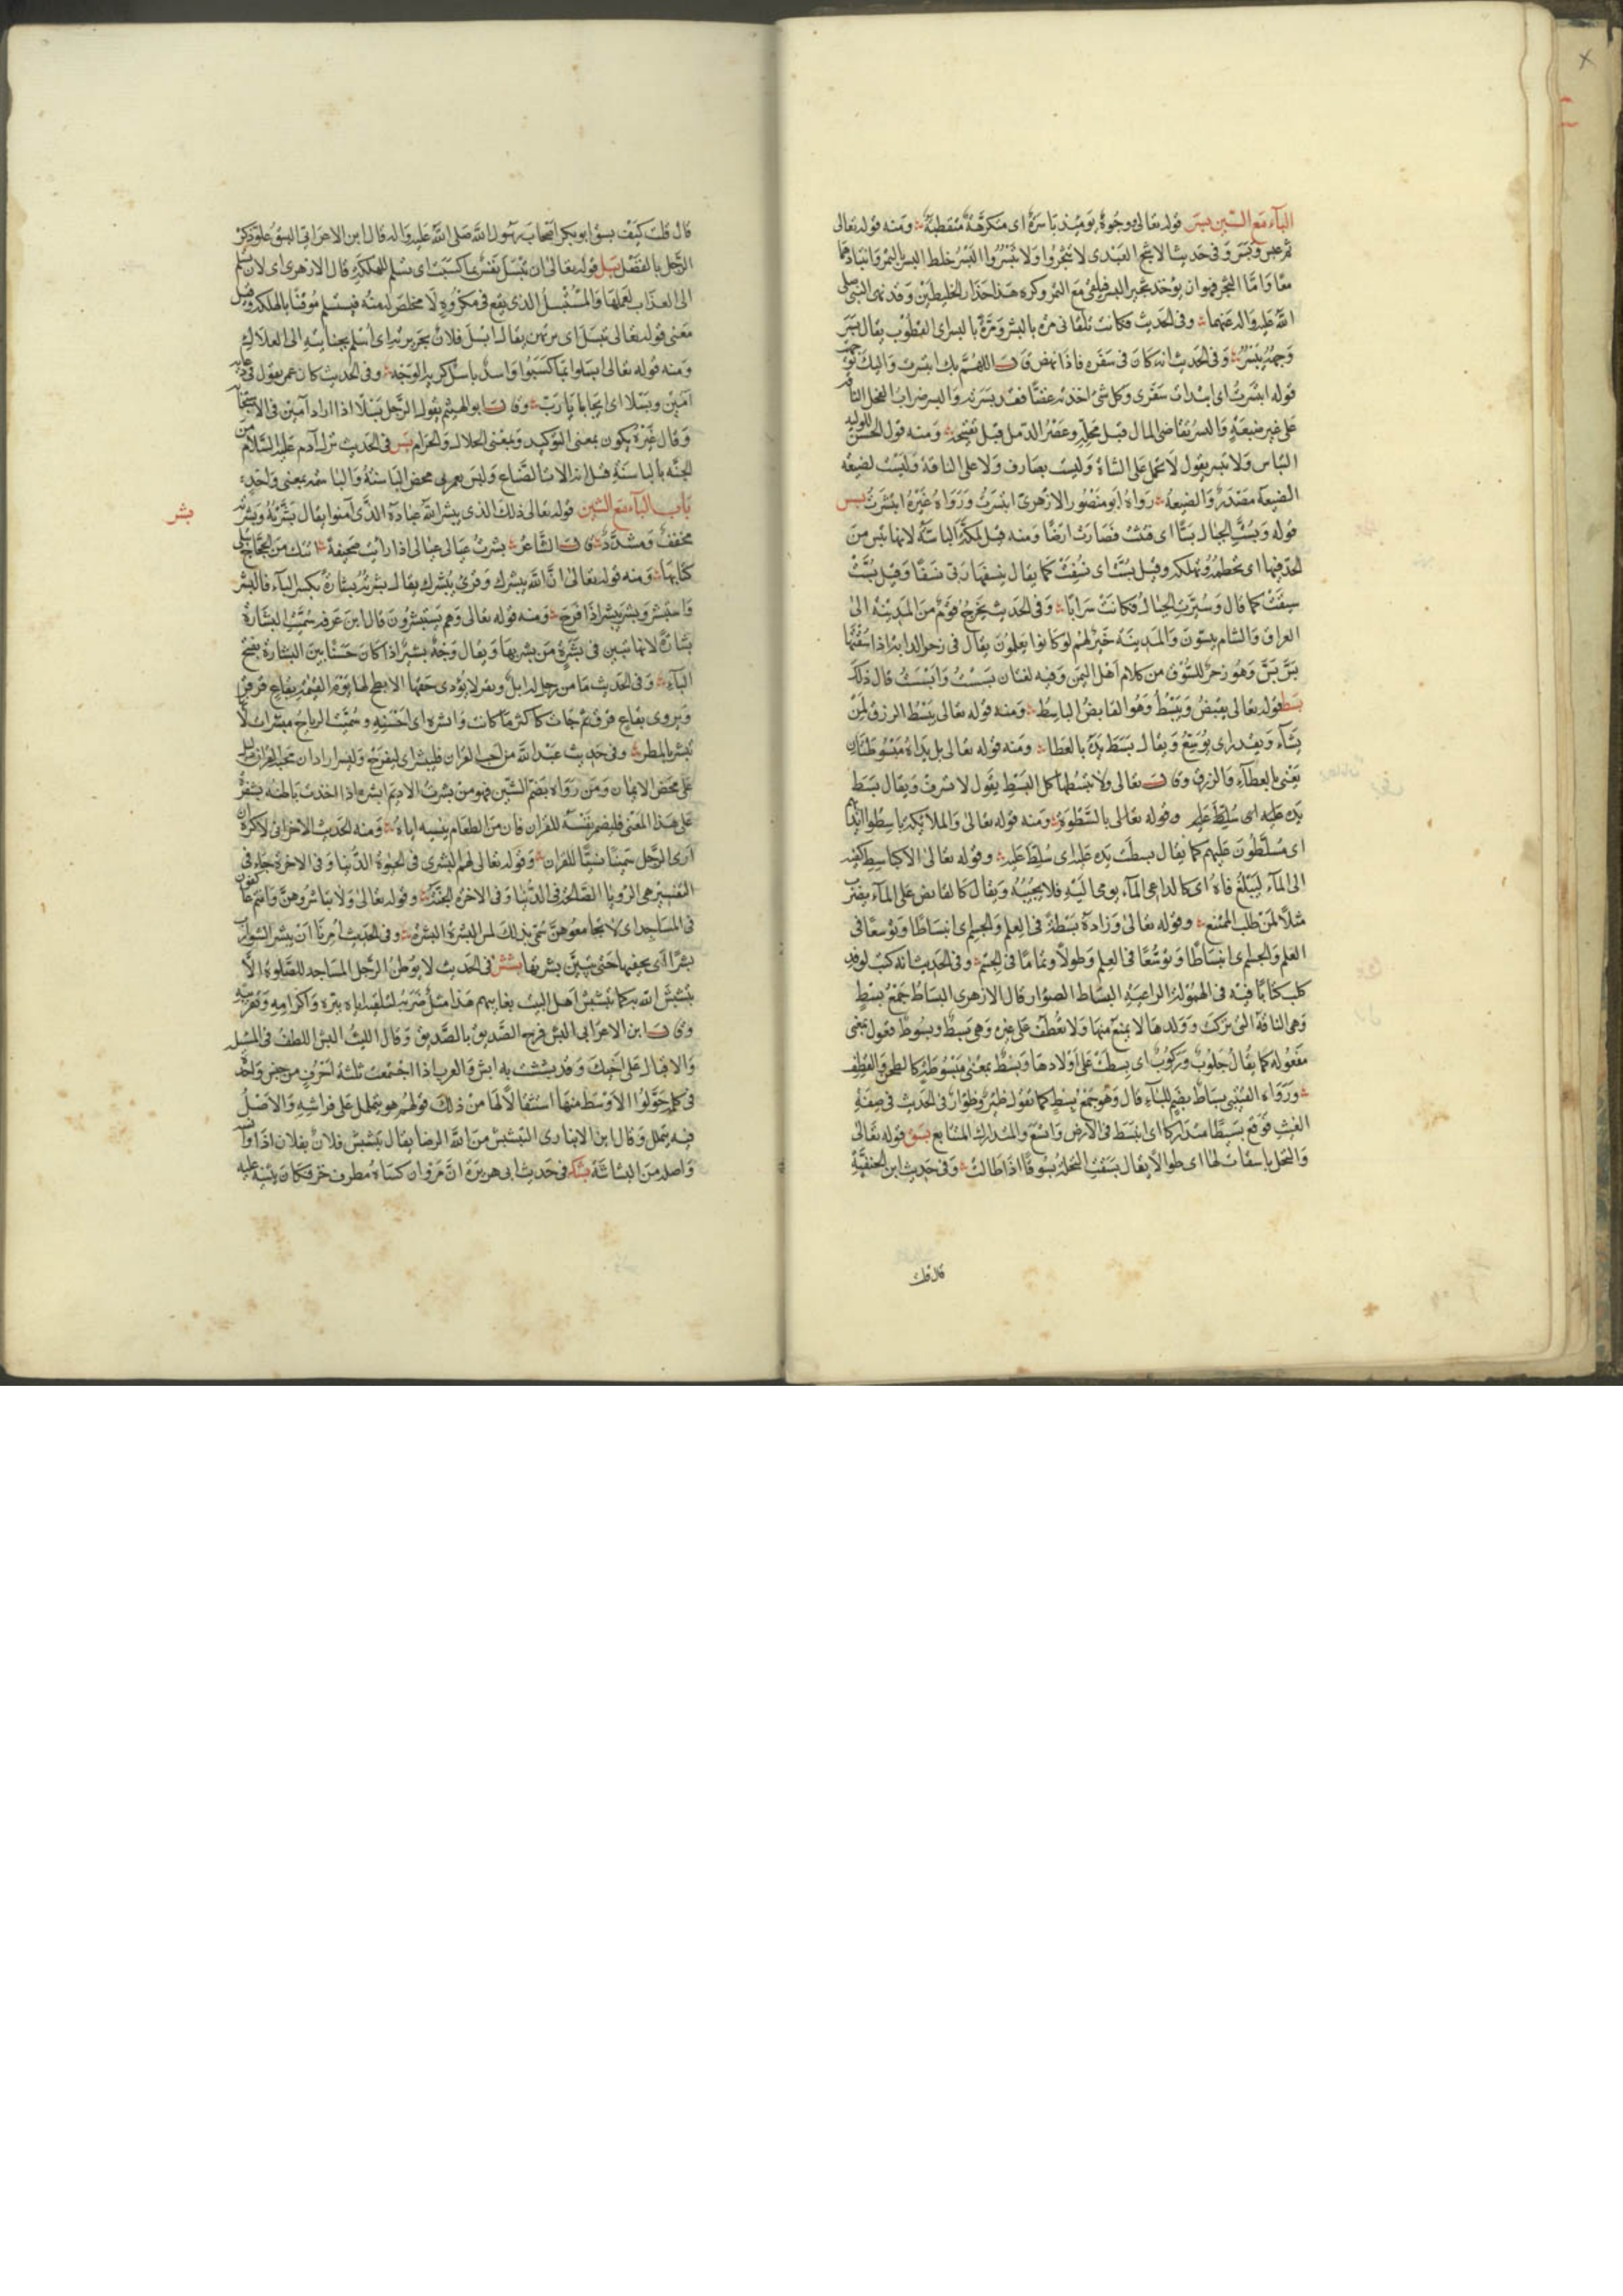 الباء مع السين بسر قوله تعالى ووجوه يومئذ باسرة اى متكرهة متقطبة ومنه قوله تعالى
ثم عبس وبسر وفى حديث الاشج العبدى لا تثجروا ولا تبسروا البسر خلط البسر بالتمر وانتباذهما
معا واما الثجر فهو ان يؤخذ ثجير البسر فيلقى مع التمر وكره هذا حذار الخليطين وقد نهى النبى صلى
الله عليه واله عنهما وفى الحديث فكانت تلقانى مرة بالبشر ومرة بالبسر اى القطوب يقال بسر
وجهه يبسر وفى الحديث انه كان فى سفره فاذا نهض قال اللهم بك ابتسرت واليك توجهت
قوله ابتسرت اى ابتدات سفرى وكل شئ اخذته غضا فقد بسرته والبسر ضراب النخل
على غير ضبعة والبسر تقاضى المال قبل محله وعصر الدمل قبل نضيجه ومنه قول الحسن للوليد
التياس ولا تبسر يقول لا تحمل على الشاة وليست بصارف ولا على الناقة وليست بضبعة
الضبعة مصدر والضبعة رواه ابو منصور الازهرى ابتسرت ورواه غيره انتشرت بس
قوله وبست الجبال بسا اى فتت فصارت ارضا ومنه قيل لمكة الباسة لانها تبس من
الحد فيها اى تحطمه وتهلكه وقيل بست اى نسفت كما يقال ينسفها ربى نسفا وقيل بست
سيقت كما قال وسيرت الجبال فكانت سرابا وفى الحديث يخرج قوم من المدينة الى
العراق والشام يبسون والمدينة خير لهم لو كانوا يعلمون يقال فى زجر الدابة اذا سقتها
بس بس وهو زجر للسوق من كلام اهل اليمن وفيه لغتان بسست وابسست قال ذلك
بسط قوله تعالى يقبض ويبسط وهو القابض الباسط ومنه قوله تعالى يبسط الرزق لمن
يشاء ويقدر اى يوسع ويقال بسط يده بالعطا ومنه قوله تعالى بل يداه مبسوطتان
يعنى بالعطاء والرزق وقال تعالى ولا تبسطها كل البسط يقول لا تسرف ويقال بسط
يده عليه اى سلط عليه وقوله تعالى بالسطوة ومنه قوله تعالى والملائكة باسطوا ايديهم
اى مسلطون عليهم كما يقال بسطت يده عليه اى سلط عليه وقوله تعالى الا كباسط كفيه
الى الماء ليبلغ فاه اى كالداعى الماء يومى اليه فلا يجيبه ويقال كالقابض على الماء يضرب
مثلا لمن طلب الممتنع وقوله تعالى وزاده بسطة فى العلم والجسم اى انبساطا وتوسعا فى
العلم والجسم اى انبساطا وتوسعا فى العلم وطولا وتماما فى الجسم وفى الحديث انه كتب لوفد
كلب كتابا فيه فى الهمولة الراعية البساط الظؤار قال الازهرى البساط جمع بسط
وهى الناقة التى تركت وولدها لا يمنع منها ولا تعطف على غيره وهى بسط وبسوط فعول بمعنى
مفعوله كما يقال حلوب وركوب اى بسطت على اولادها وبسط بمعنى مبسوطة كالطحن والقطف
ورواه القتيبى بساط بضم الباء قال وهو جمع بسط كما تقول ظئر وظؤار وفى الحديث فى صفة
الغيث فوقع بسيطا متداركا اى انبسط فى الارض واتسع والمتدارك المتتابع بسق قوله تعالى
والنخل باسقات لها اى طوالا يقال بسقت النخلة بسوقا اذا طالت وفى حديث ابن الحنفية
قال قلت
قال قلت كيف بسق ابو بكر اصحاب رسول الله صلى الله عليه واله قال ابن الاعرابى البسق علو ذكر
الرجل بالفضل بسل قوله تعالى ان تبسل نفس بما كسبت اى تسلم للهلكة قال الازهرى اى لان تسلم
الى العذاب بعملها والمستبسل الذى يقع فى مكروه لا مخلص له منه فيستسلم موقنا بالهلكة وقيل
معنى قوله تعالى تبسل اى ترتهن يقال ابسل فلان بجريرته اى اسلم بجنايته الى الهلاك
ومنه قوله تعالى ابسلوا بما كسبوا واسد باسل كريه الوجه وفى الحديث كان عمر يقول فى دعائه
آمين وبسلا اى ايجابا يا رب وقال ابو الهيثم يقول الرجل بسلا اذا اراد آمين فى الاستجابة
وقال غيره يكون بمعنى التوكيد وبمعنى الحلال والحرام بسن فى الحديث نزل آدم عليه السلام من
الجنة بالباسنة قيل انه آلات الصناع وليس بعربى محض الباسنة والباسنة بمعنى واحد
باب الباء مع الشين قوله تعالى ذلك الذى يبشر الله عباده الذى آمنوا يقال بشرته وبشرته
بشر
مخفف ومشدد قال الشاعر بشرت عيالى اذ رايت صحيفة اتتك من الحجاج يتلى
كتابها ومنه قوله تعالى ان الله يبشرك وقرئ يبشرك يقال بشرته بشارة بكسر الباء فابشر
واستبشر وبشر يبشر اذا فرح ومنه قوله تعالى وهم يستبشرون قال ابن عرفة سميت البشارة
بشارة لانها تتبين فى بشرة من بشر بها ويقال وجه بشير اذا كان حسنا بين البشارة بفتح
الباء وفى الحديث ما من رجل له ابل وبقر لا يؤدى حقها الا بطح لها يوم القيمة بقاع قرقر
ويروى بقاع قرق ثم جات كاكثر ما كانت وابشره اى احسنه وسميت الرياح مبشرات لانها
تبشر بالمطر وفى حديث عبد الله من احب القران فليبشر اى ليفرح وليسر اراد ان محبة القران دليل
على محض الايمان ومن رواه بضم الشين فهو من بشرت الاديم ابشره اذا اخذت باطنه بشفرة
على هذا المعنى فليضمر نفسه للقران فان من الطعام ينسيه اياه ومنه الحديث الاخر انى لاكره ان
ارى الرجل سمينا نسيا للقران وقوله تعالى لهم البشرى فى الحيوة الدنيا وفى الاخرة جاء فى
التفسير هى الرويا الصالحة فى الدنيا وفى الاخرة الجنة وقوله تعالى ولا تباشروهن وانتم عاكفون
فى المساجد اى لا تجامعوهن سمى بذلك لمس البشرة البشرة وفى الحديث امرنا ان نبشر الشوارب
بشرا اى نحفيها حتى تتبين بشرتها بشش فى الحديث لا يوطن الرجل المساجد للصلوة الا
تبشبش الله به كما تبشبش اهل البيت بغايبهم هذا مثل ضربه لتلقيه اياه ببره واكرامه وتقريبه
وقال ابن الاعرابى البش فرح الصديق بالصديق وقال الليث البش اللطف فى المسئلة
والاقبال على اخيك وقد بششت به ابش والعرب اذا اجتمعت ثلثة احرف من جنس واحد
فى كلمة حولوا الاوسط منها استثقالا لها من ذلك قولهم هو يتململ على فراشه والاصل
فيه يتملل وقال ابن الانبارى التبشبش من الله الرضا يقال تبشبش فلان بفلان اذا آنسه
واصله من البشاشة بشك فى حديث ابى هريرة ان مروان كساه مطرف خز فكان يثنيه عليه